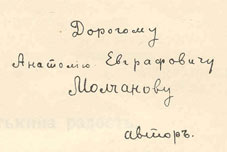 Дорогому
Анатолію Евграфовичу
Молчанову
авторъ.